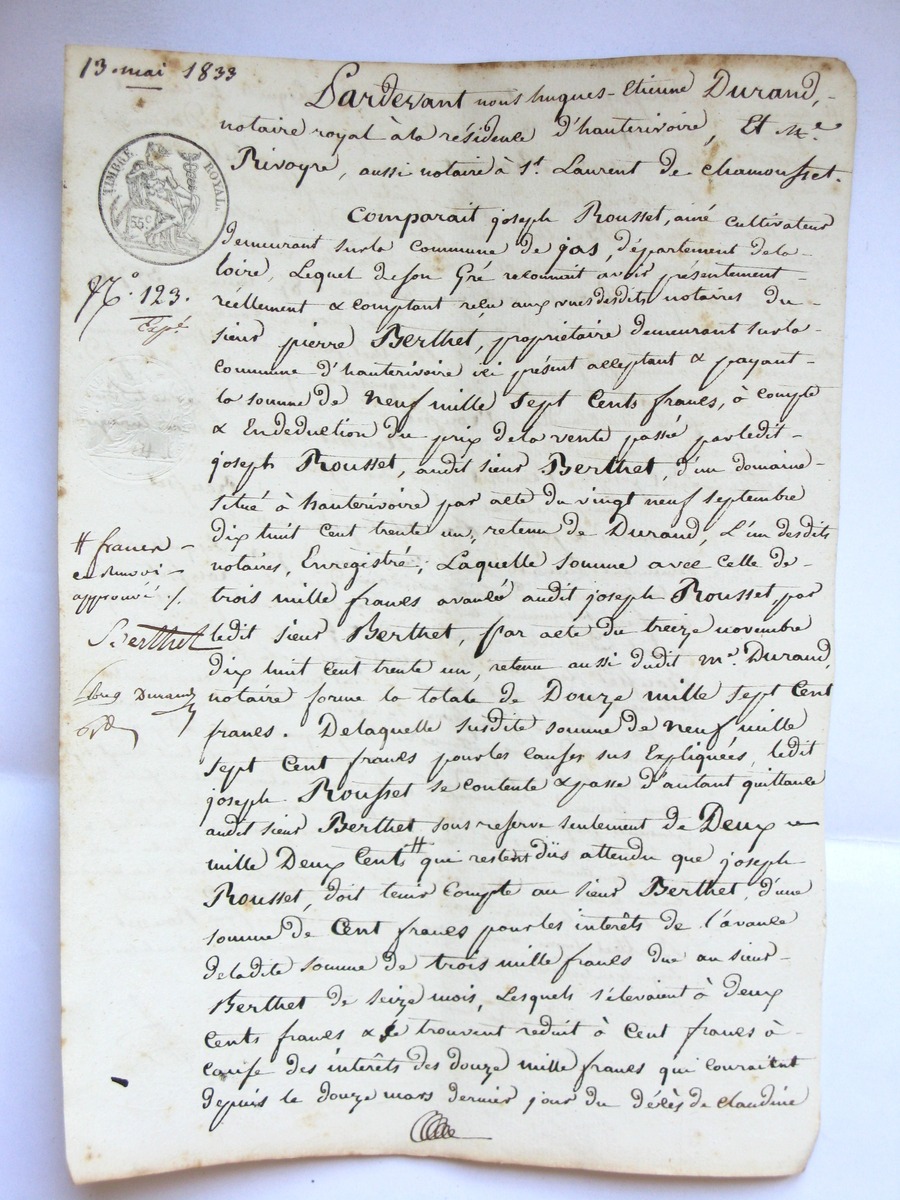 13. mai 1833
Pardevant nous hugues-Etienne Durand,
notaire royal à la résidence d'hauterivoire, Et Me
Rivoyre, aussi notaire à St Laurent de chamousset.
TIMBRE ROYAL
35c
Comparait joseph Rousset, ainé cultivateur
demeurant sur la commune de jas, département de la
loire, Lequel de son Gré reconnait avoir présentement
réellement & comptant reçu aux vues desdits notaires du
No. 123.
Expé.
sieur pierre Berthet, propriétaire demeurant sur la
commune d'hauterivoire ici présent acceptant & payant
la somme de neuf mille sept Cents francs, à compte
& En deduction du prix de la vente passé par ledit
joseph Rousset, audit sieur Berthet, d'un domaine
situé à hauterivoire par acte du vingt neuf septembre
dix huit cent trente un, retenu de Durand, L'un desdits
notaires, Enregistré; Laquelle somme avec celle de
trois mille francs avancée audit joseph Rousset, par
ledit sieur Berthet, par acte du treize novembre
dix huit cent trente un, retenu aussi dudit me. Durand,
notaire forme la totale de Douze mille sept Cent
francs. De laquelle susdite somme de neuf mille
sept Cent francs pour les causes sus Expliquées, ledit
joseph Rousset se contente & passe d'autant quittance
audit sieur Berthet sous reserve seulement de Deux
mille Deux Cents # qui restent dûs attendu que joseph
Rousset, doit tenir Compte au sieur Berthet, d'une
somme de Cent francs pour les interêts de l'avance
de ladite somme de trois mille francs due au sieur
Berthet de seize mois, Lesquels s'élevaient à deux
Cents francs & se trouvent reduit à Cent francs à
cause des interêts des douze mille francs qui couraient
depuis le douze mars dernier jour du décès de claudine
# francs
en renvoi
approuvé ./.
Berthet
hug Durand